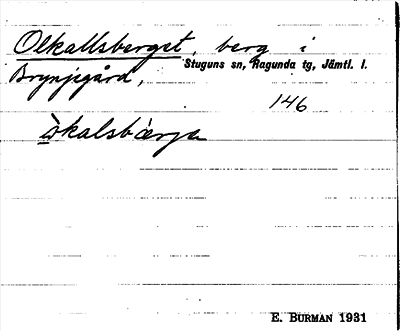 Olkallsberget, berg i
Stuguns sn, Ragunda tg, Jämtl. l.
Brynjegård,
146
òkalsbærje
E. BURMAN 1931